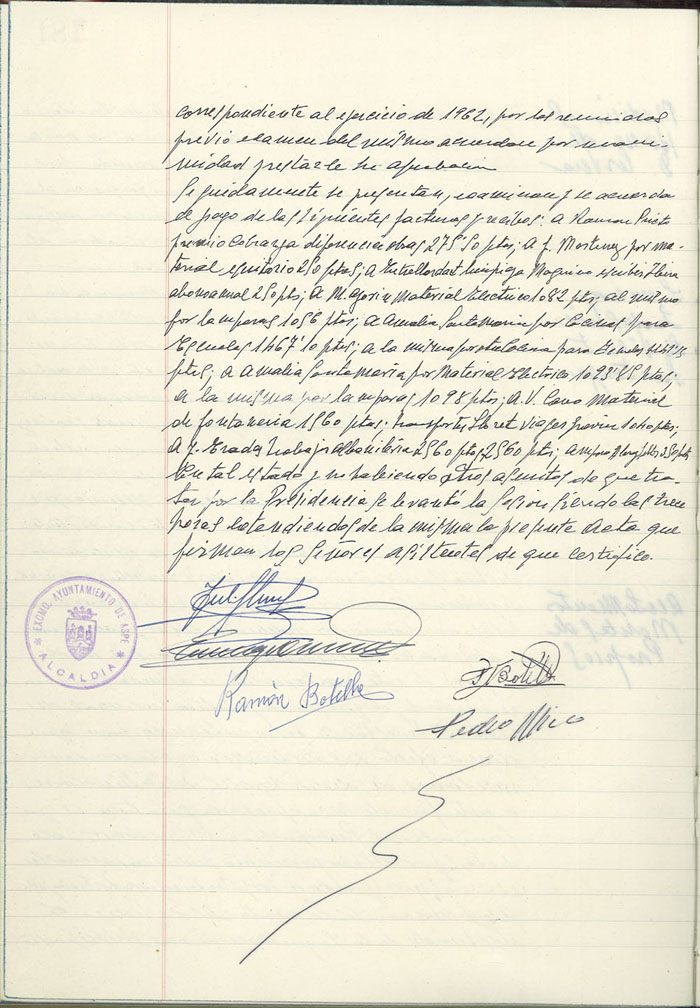 correspondiente al ejercicio de 1962, por los reunidos
previo examen del mismo acuerdan por unani-
midad prestarle su aprobación
Seguidamente se presentan, examinan y se acuerda
el pago de las siguientes facturas y recibos: a Ramon Prieto
premio Cobranza diferencia obras 275'50 ptas; A F. Martinez por ma-
terial escritorio 250 ptas; A limpieza Maquina escribir
abono anual 250 pts; A M. Material Electrico 1082 pts; al mismo
por lamparas 1056 ptas; a Amalia Santa Maria por Cocinas para
Escuelas 1467'10 ptas; a la misma por Cocina para Escuelas
ptas; a Amalia Santa Maria por Material Electrico 1093'85 ptas;
a la misma por lamparas 1098 ptas; A. V. Cano Material
de fontaneria 1560 ptas; transportes Lloret viajes
A J. Trabajos albañileria 2560 ptas 2560 ptas;
En tal estado y no habiendo otros asuntos de que tra-
tar por la Presidencia se levantó la Sesion siendo las trece
horas extendiendose de la misma la presente Acta que
firman los Señores asistentes de que certifico.
EXCMO. AYUNTAMIENTO DE ASPE
ALCALDIA
Ramón Botella
Botella
Pedro Mico